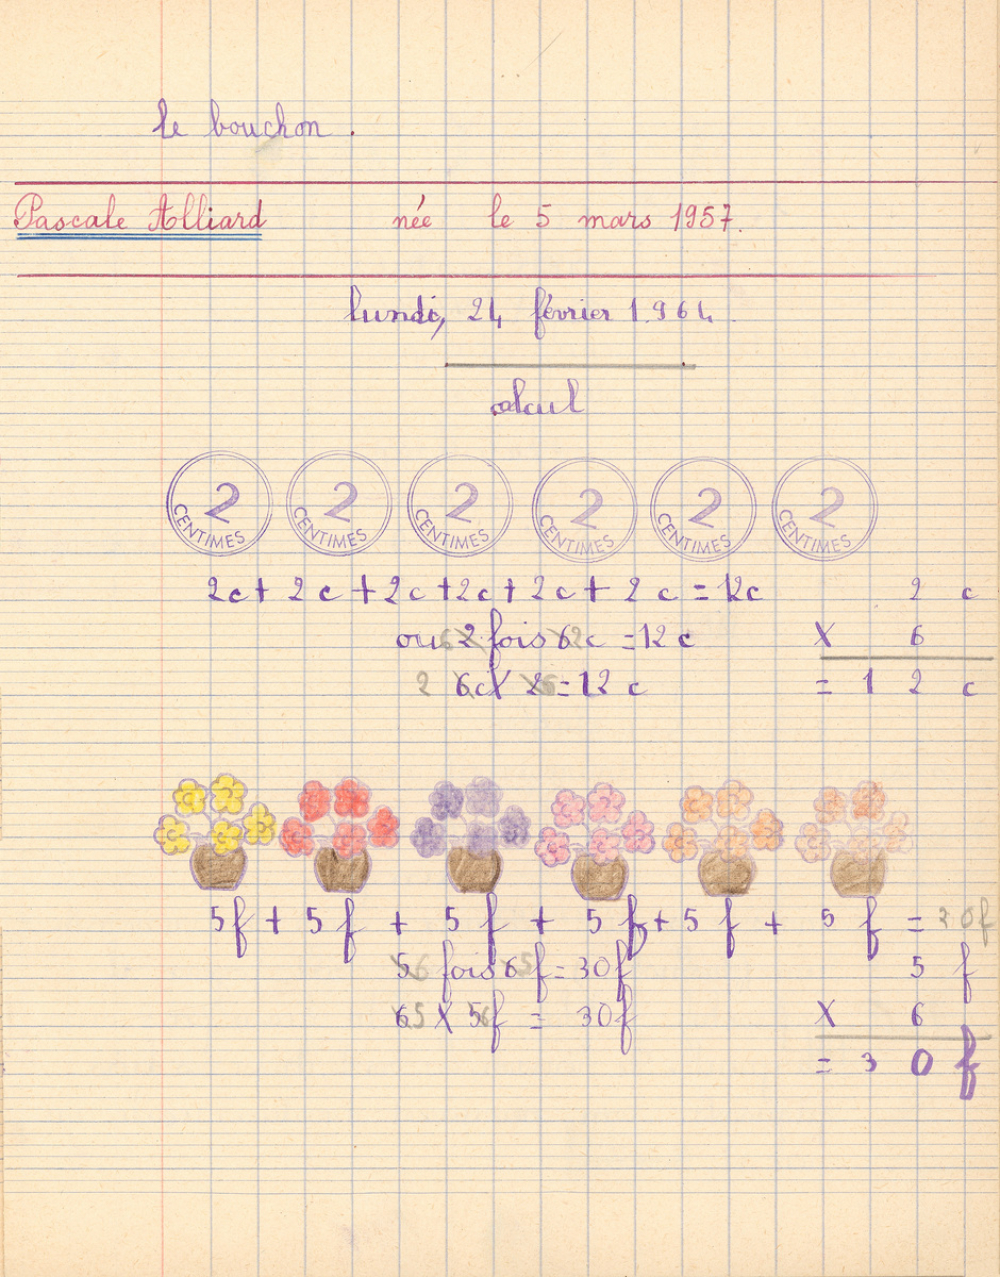 le bouchon.
Pascale Alliard née le 5 mars 1957.
lundi, 24 février 1.964.
calcul
2 CENTIMES 2 CENTIMES 2 CENTIMES 2 CENTIMES 2 CENTIMES 2 CENTIMES
2c + 2c + 2c + 2c + 2c + 2c = 12c 2 c
ou 2 fois 6c = 12c X 6
2 6c X 2 = 12 c = 1 2 c
5f + 5f + 5f + 5f + 5f + 5f = 30f
5 fois 6f = 30f 5 f
6 X 5f = 30f X 6
= 3 0 f